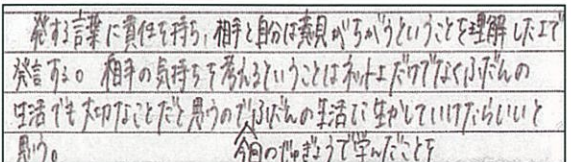 発する言葉に責任を持ち、相手と自分は素質がちがうということを理解した上で
発言する。相手の気持ちを考えるということはネット上だけでなくふだんの
生活でも大切なことだと思うのでふだんの生活に生かしていけたらいいと
思う。 今回のじゅぎょうで学んだことを